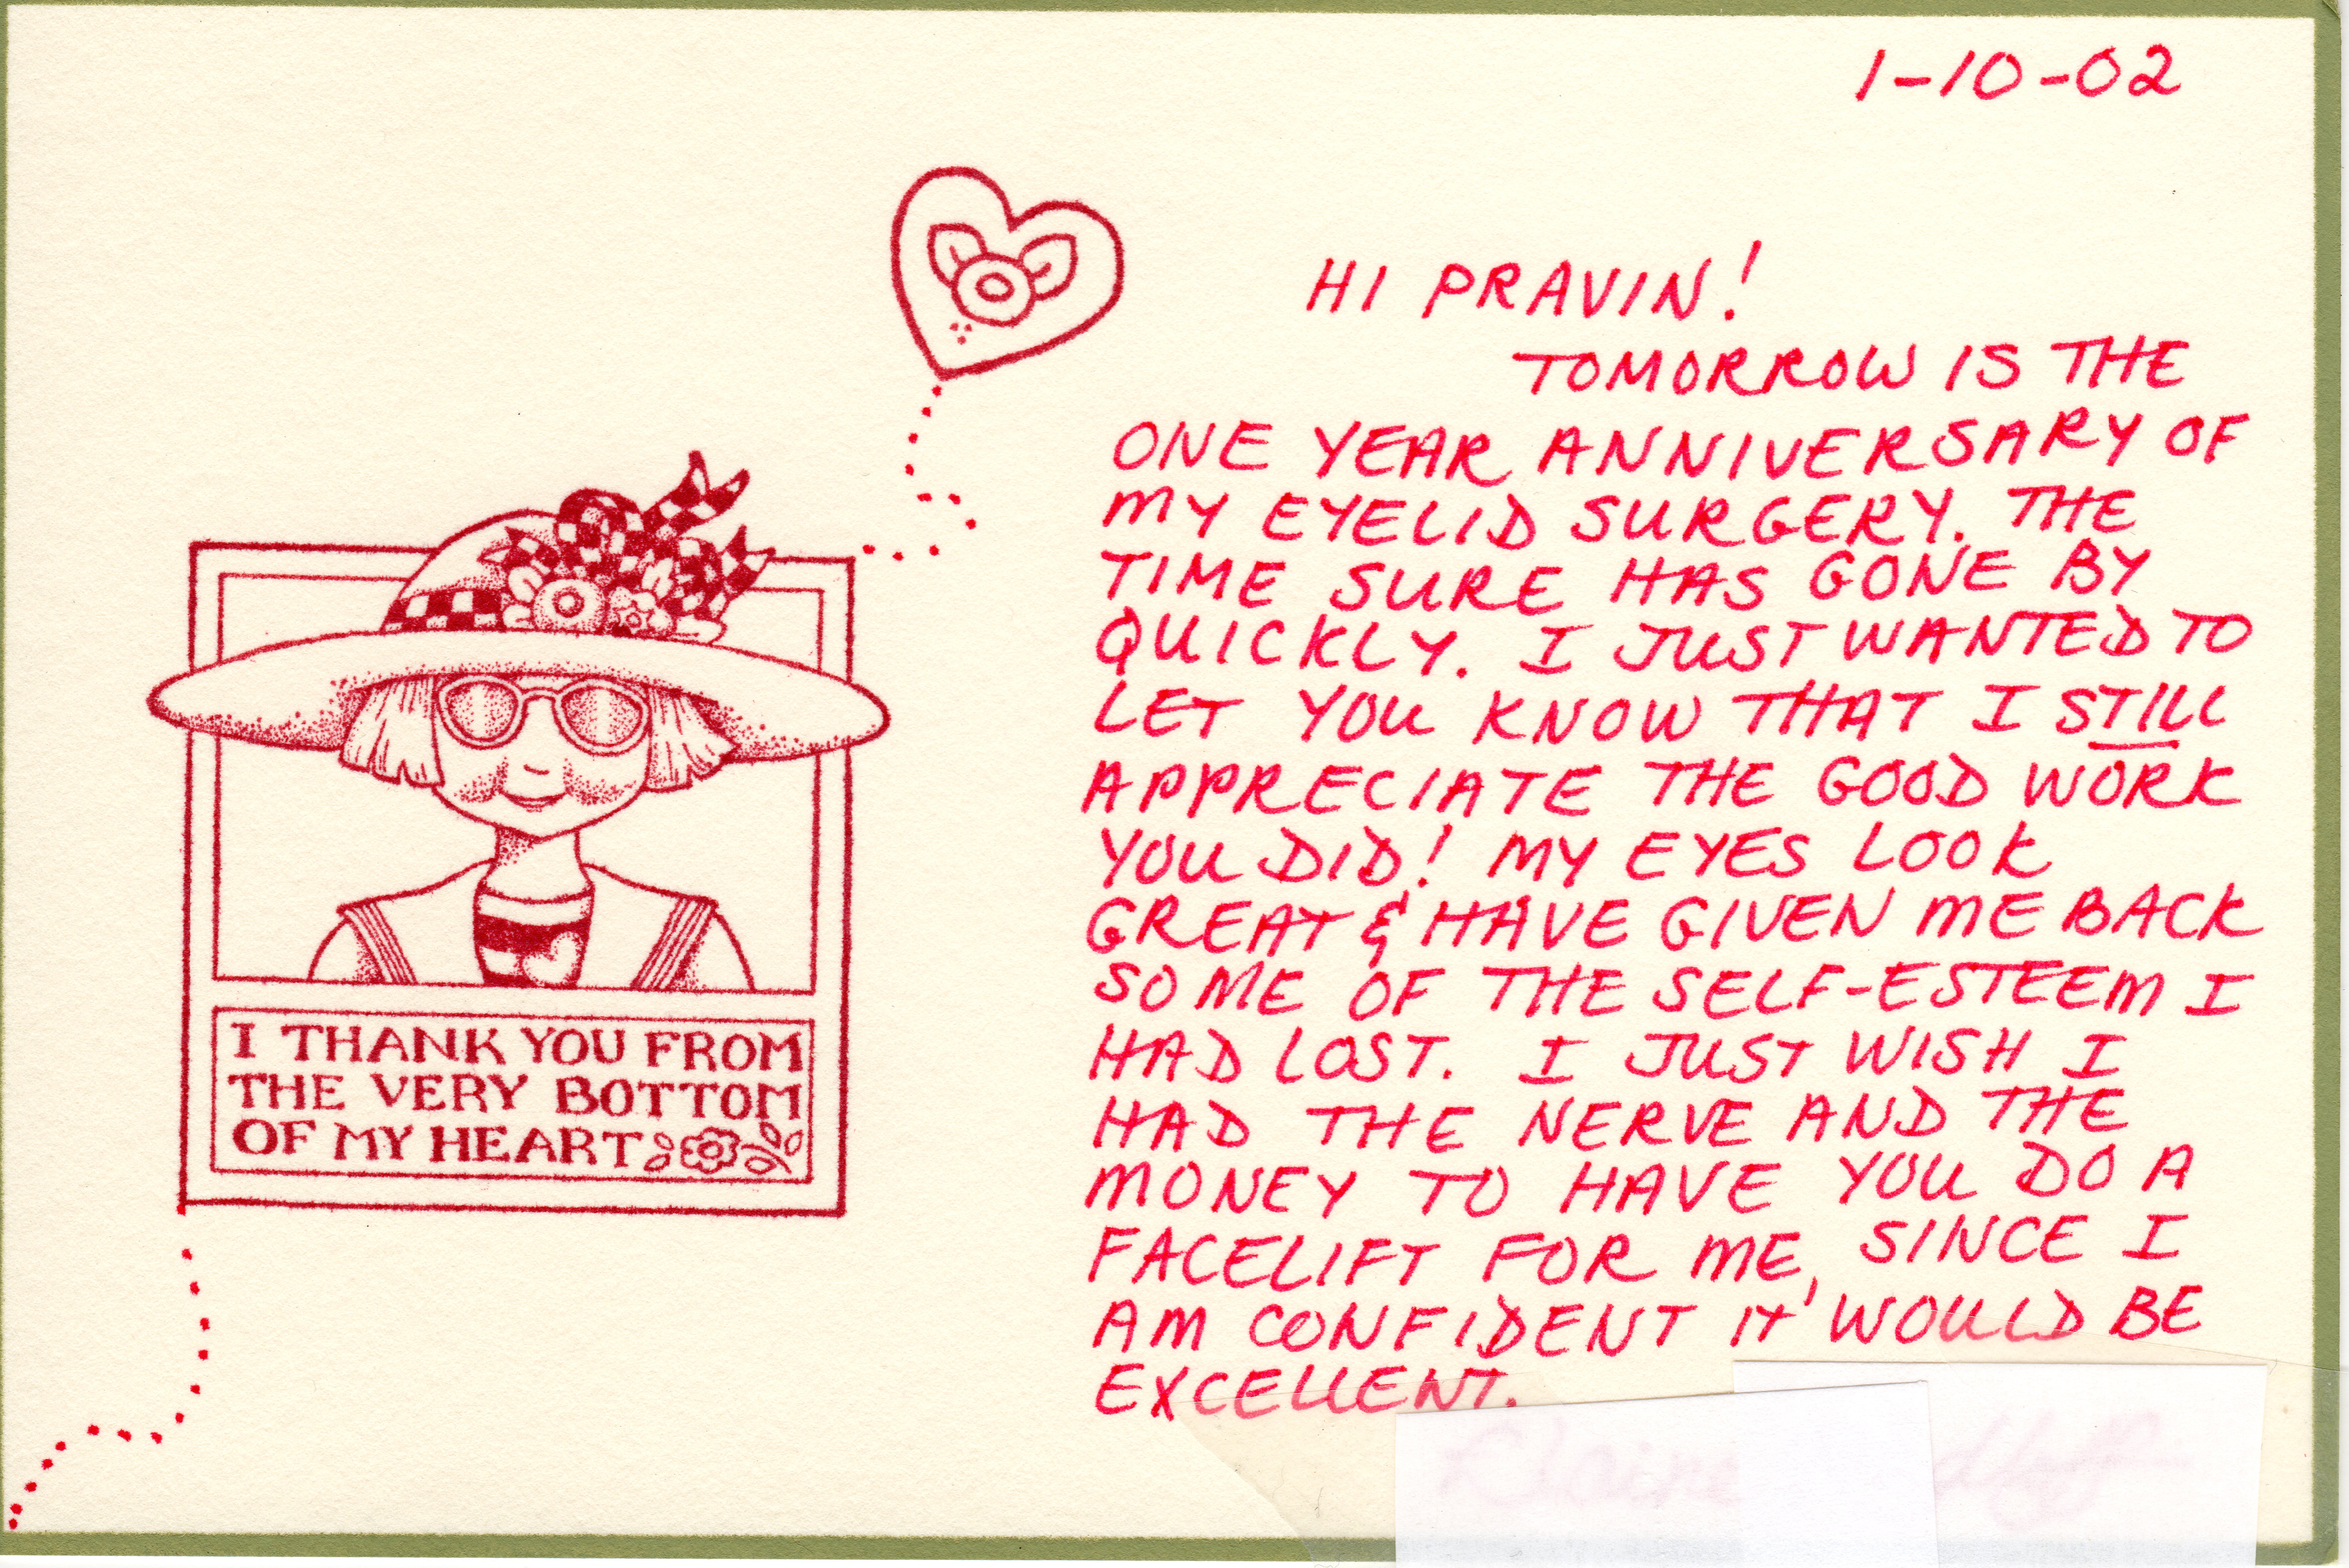 1-10-02
HI PRAVIN!
TOMORROW IS THE
ONE YEAR ANNIVERSARY OF
MY EYELID SURGERY. THE
TIME SURE HAS GONE BY
QUICKLY. I JUST WANTED TO
LET YOU KNOW THAT I STILL
APPRECIATE THE GOOD WORK
YOU DID! MY EYES LOOK
GREAT & HAVE GIVEN ME BACK
SOME OF THE SELF-ESTEEM I
HAD LOST. I JUST WISH I
HAD THE NERVE AND THE
MONEY TO HAVE YOU DO A
FACELIFT FOR ME, SINCE I
AM CONFIDENT IT WOULD BE
EXCELLENT.
I THANK YOU FROM
THE VERY BOTTOM
OF MY HEART